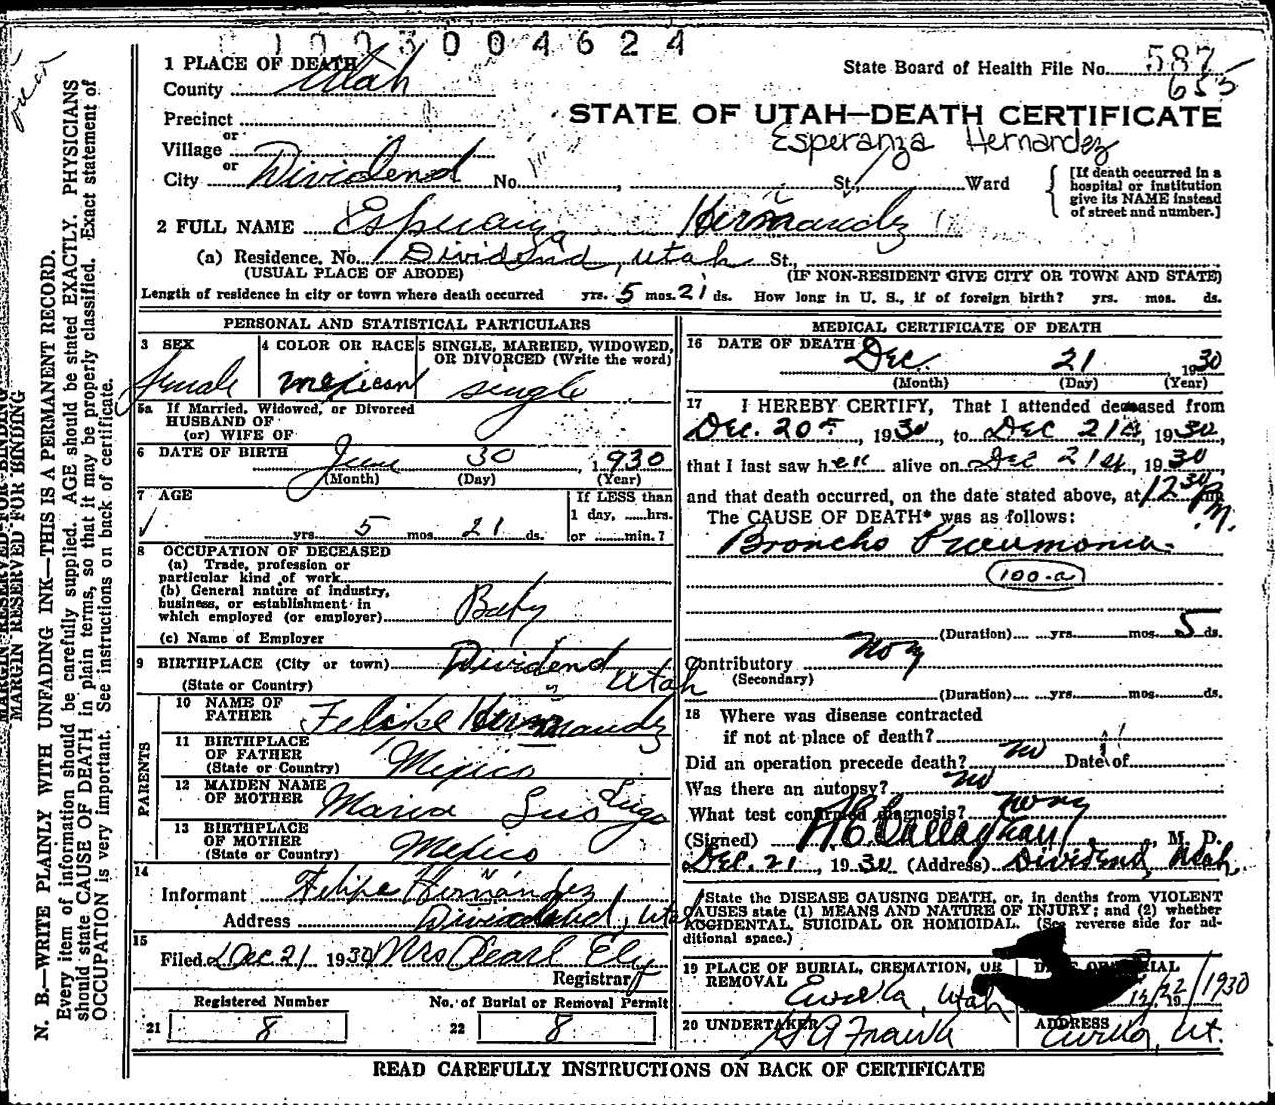 1003004624
1 PLACE OF DEATH
County Utah
State Board of Health File No. 587
655
Precinct
or
Village
or
City Dividend No. , St., Ward
STATE OF UTAH—DEATH CERTIFICATE
Esperanza Hernandez
[If death occurred in a
hospital or institution
give its NAME instead
of street and number.]
2 FULL NAME Esperanza Hernandez
(a) Residence. No. Dividend, Utah St.,
(USUAL PLACE OF ABODE) (IF NON-RESIDENT GIVE CITY OR TOWN AND STATE)
Length of residence in city or town where death occurred yrs. 5 mos. 21 ds. How long in U. S., if of foreign birth? yrs. mos. ds.
PERSONAL AND STATISTICAL PARTICULARS
3 SEX
female
4 COLOR OR RACE
mexican
5 SINGLE, MARRIED, WIDOWED,
OR DIVORCED (Write the word)
single
5a If Married, Widowed, or Divorced
HUSBAND OF
(or) WIFE OF
6 DATE OF BIRTH
June 30, 1930
(Month) (Day) (Year)
7 AGE
yrs. 5 mos. 21 ds.
If LESS than
1 day, ......hrs.
or ......min.?
8 OCCUPATION OF DECEASED
(a) Trade, profession or
particular kind of work
(b) General nature of industry,
business, or establishment in
which employed (or employer) Baby
(c) Name of Employer
9 BIRTHPLACE (City or town) Dividend
(State or Country) Utah
PARENTS
10 NAME OF
FATHER Felipe Hernandez
11 BIRTHPLACE
OF FATHER
(State or Country) Mexico
12 MAIDEN NAME
OF MOTHER Maria Lugo
13 BIRTHPLACE
OF MOTHER
(State or Country) Mexico
14
Informant Felipe Hernández
Address Dividend, Utah
15
Filed Dec 21 1930 Mrs Pearl Ely
Registrar
Registered Number
21 8
No. of Burial or Removal Permit
22 8
MEDICAL CERTIFICATE OF DEATH
16 DATE OF DEATH
Dec. 21 1930
(Month) (Day) (Year)
17 I HEREBY CERTIFY, That I attended deceased from
Dec. 20th, 1930, to Dec 21st, 1930,
that I last saw her alive on Dec 21st, 1930
and that death occurred, on the date stated above, at 12 30 P.M.
The CAUSE OF DEATH* was as follows:
Broncho Pneumonia.
100-a
(Duration) yrs. mos. 5 ds.
Contributory
(Secondary)
(Duration) yrs. mos. ds.
18 Where was disease contracted
if not at place of death?
Did an operation precede death? no Date of
Was there an autopsy? no
What test confirmed diagnosis?
(Signed) H C Callaghan, M. D.
Dec. 21, 1930 (Address) Dividend Utah.
*State the DISEASE CAUSING DEATH, or, in deaths from VIOLENT
CAUSES state (1) MEANS AND NATURE OF INJURY; and (2) whether
ACCIDENTAL, SUICIDAL OR HOMICIDAL. (See reverse side for ad-
ditional space.)
19 PLACE OF BURIAL, CREMATION, OR
REMOVAL
Eureka, Utah
12/22/1930
20 UNDERTAKER
ADDRESS
Eureka, Ut.
READ CAREFULLY INSTRUCTIONS ON BACK OF CERTIFICATE
MARGIN RESERVED FOR BINDING
MARGIN RESERVED FOR BINDING
N. B.—WRITE PLAINLY WITH UNFADING INK—THIS IS A PERMANENT RECORD.
Every item of information should be carefully supplied. AGE should be stated EXACTLY. PHYSICIANS
should state CAUSE OF DEATH in plain terms, so that it may be properly classified. Exact statement of
OCCUPATION is very important. See instructions on back of certificate.